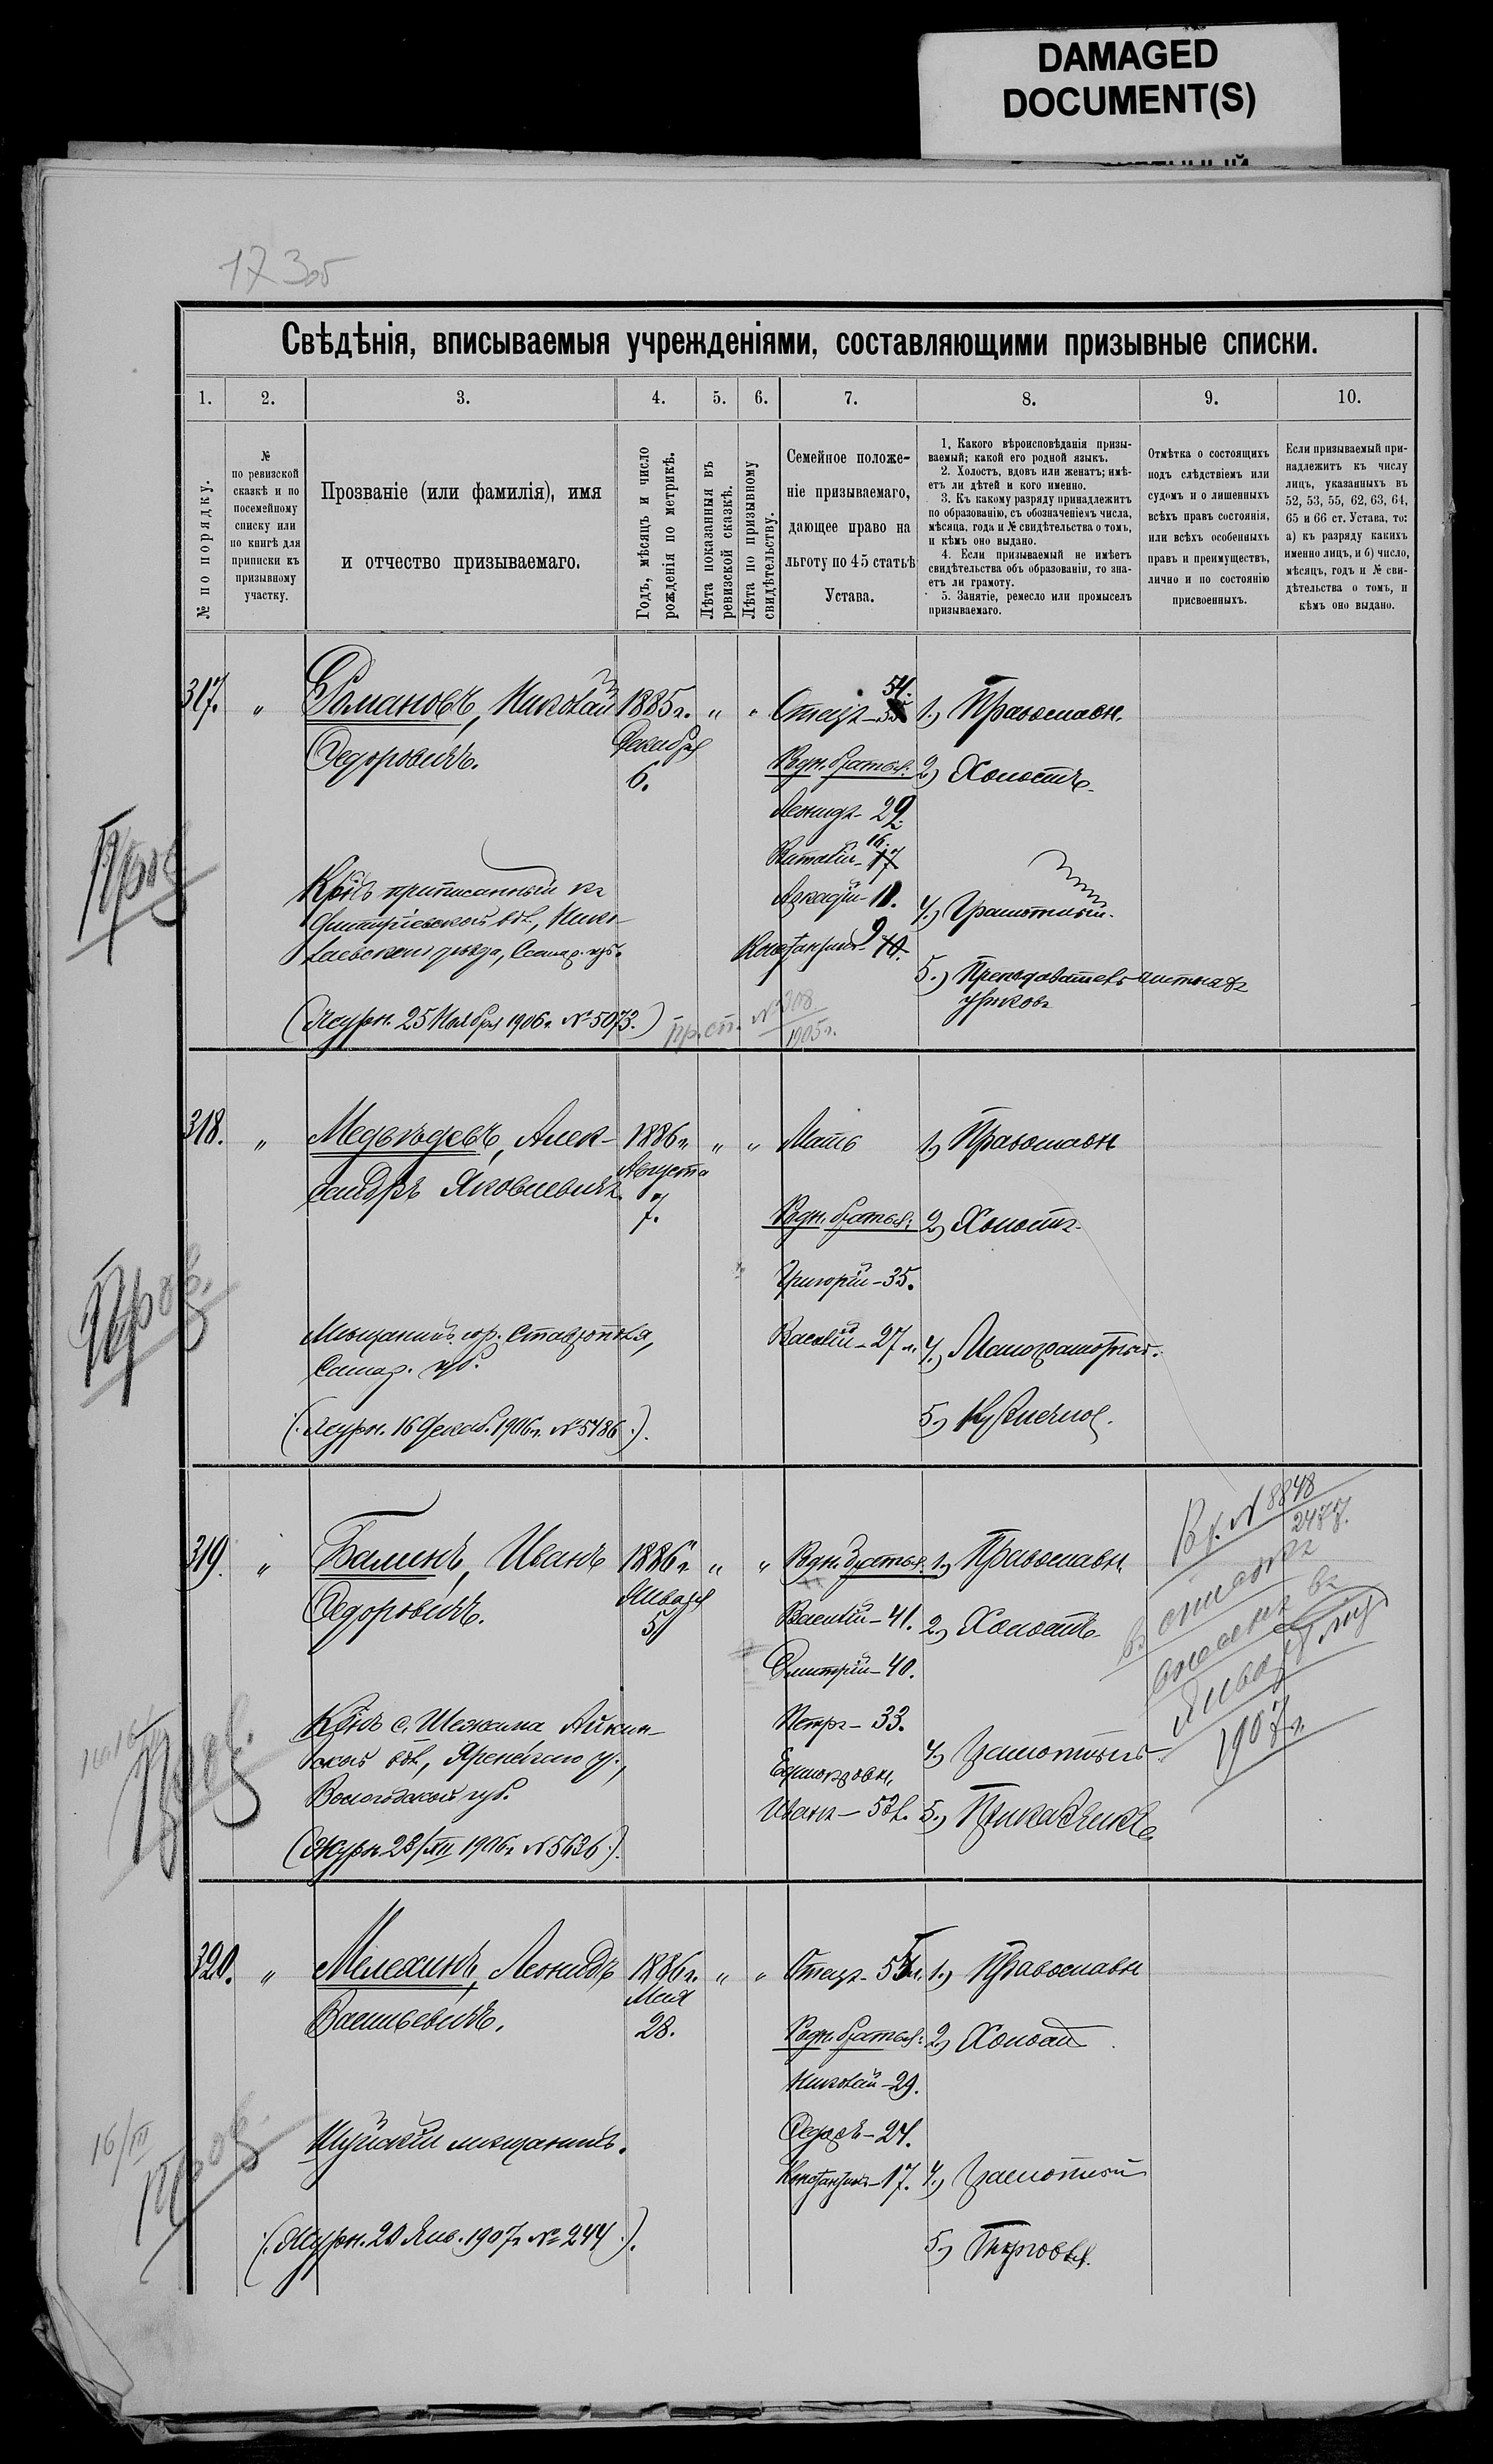 DAMAGED
DOCUMENT(S)
173об
Свѣдѣнія, вписываемыя учрежденіями, составляющими призывные списки.
1. 2. 3. 4. 5. 6. 7. 8. 9. 10.
№ по порядку.
№
по ревизской
сказкѣ и по
посемейному
списку или
по книгѣ для
приписки къ
призывному
участку.
Прозваніе (или фамилія), имя
и отчество призываемаго.
Годъ, мѣсяцъ и число
рожденія по метрикѣ.
Лѣта показанныя въ
ревизской сказкѣ.
Лѣта по призывному
свидѣтельству.
Семейное положе-
ніе призываемаго,
дающее право на
льготу по 45 статьѣ
Устава.
1. Какого вѣроисповѣданія призы-
ваемый; какой его родной языкъ.
2. Холостъ, вдовъ или женатъ; имѣ-
етъ ли дѣтей и кого именно.
3. Къ какому разряду принадлежитъ
по образованію, съ обозначеніемъ числа,
мѣсяца, года и № свидѣтельства о томъ,
и кѣмъ оно выдано.
4. Если призываемый не имѣетъ
свидѣтельства объ образованіи, то зна-
етъ ли грамоту.
5. Занятіе, ремесло или промыселъ
призываемаго.
Отмѣтка о состоящихъ
подъ слѣдствіемъ или
судомъ и о лишенныхъ
всѣхъ правъ состоянія,
или всѣхъ особенныхъ
правъ и преимуществъ,
лично и по состоянію
присвоенныхъ.
Если призываемый при-
надлежитъ къ числу
лицъ, указанныхъ въ
52, 53, 55, 62, 63, 64,
65 и 66 ст. Устава, то:
а) къ разряду какихъ
именно лицъ, и б) число,
мѣсяцъ, годъ и № сви-
дѣтельства о томъ, и
кѣмъ оно выдано.
317. " Романовъ, Николай 1885г. " " Отецъ - 54. 1.) Православн.
Федоровичъ. Декабря
6.
Родн. братья: 2) Холостъ
Леонидъ - 22.
Виталій - 16. 17
Аркадій - 11. 4.) Грамотный.
Константинъ - 9 10.
5.) Преподаватель частныхъ
уроковъ
Пров.
Кр-нъ приписанный къ
Дмитріевской вол., Нико-
лаевскаго уѣзда, Самар. губ.
(Журн. 25 Ноября 1906г. № 5073.)
пр. сп. № 308
1905г.
318. " Медвѣдевъ, Алек- 1886г. " " Мать 1) Православн
сандръ Яковлевичъ. Августа
7.
Родн. братья: 2) Холостъ
Григорій - 35.
Василій - 27 л. 4.) Малограмотный.
5) Кузнечное.
Пров.
Мѣщанинъ гор. Ставрополя,
Самар. губ.
(Журн. 16 Декаб. 1906г. № 5486.)
319. " Балинъ, Иванъ 1886г. " " Родн. братья: 1) Православн.
Федоровичъ. Января
5
Василій - 41. 2) Холостъ
Дмитрій - 40.
Петръ - 33.
4) Грамотный
Единокровн.
Иванъ - 5 л. 5.) Приказчикъ
Пров.
Кр-нъ с. Шежама Айкин-
ской вол., Яренскаго у.,
Вологодской губ.
(Журн. 28/XII 1906г. № 5636.)
Вх. № 8848
1907г.
320. " Мелехинъ, Леонидъ 1886г. " " Отецъ - 55 л. 1.) Православн
Васильевичъ. Мая
28.
Родн. братья: 2) Холостъ
Николай - 29.
Федоръ - 24.
Константинъ - 17. 4.) Грамотный
5) Торговля.
16/III
Пров.
Шуйскій мѣщанинъ.
(Журн. 20 Янв. 1907г. № 244.)